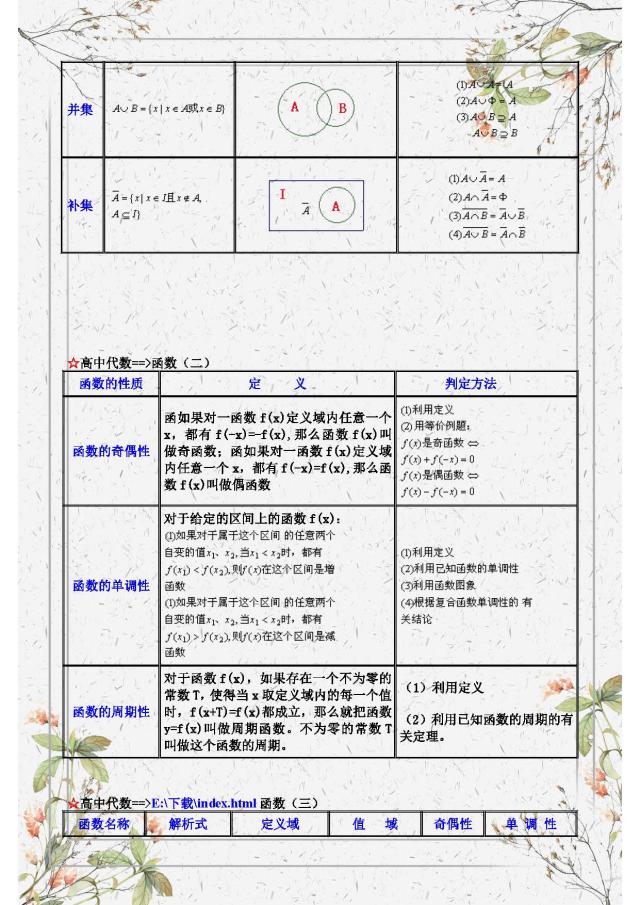 并集
A∪B={x|x∈A或x∈B}
A B
(1)A∪A=A
(2)A∪Φ=A
(3)A∪B⊇A
A∪B⊇B
补集
A̅={x|x∈I且x∉A,
A⊆I}
I
A̅ A
(1)A∪A̅=A
(2)A∩A̅=Φ
(3)A∩B̅=A̅∪B̅
(4)A∪B̅=A̅∩B̅
☆高中代数==>函数（二）
函数的性质 定 义 判定方法
函数的奇偶性
函如果对一函数f(x)定义域内任意一个
x，都有f(-x)=-f(x),那么函数f(x)叫
做奇函数；函如果对一函数f(x)定义域
内任意一个x，都有f(-x)=f(x),那么函
数f(x)叫做偶函数
(1)利用定义
(2)用等价例题：
f(x)是奇函数⇔
f(x)+f(-x)=0
f(x)是偶函数⇔
f(x)-f(-x)=0
函数的单调性
对于给定的区间上的函数f(x)：
(1)如果对于属于这个区间 的任意两个
自变的值x₁、x₂,当x₁<x₂时，都有
f(x₁)<f(x₂),则f(x)在这个区间是增
函数
(1)如果对于属于这个区间 的任意两个
自变的值x₁、x₂,当x₁<x₂时，都有
f(x₁)>f(x₂),则f(x)在这个区间是减
函数
(1)利用定义
(2)利用已知函数的单调性
(3)利用函数图象
(4)根据复合函数单调性的 有
关结论
函数的周期性
对于函数f(x)，如果存在一个不为零的
常数T，使得当x取定义域内的每一个值
时，f(x+T)=f(x)都成立，那么就把函数
y=f(x)叫做周期函数。不为零的常数T
叫做这个函数的周期。
（1）利用定义
（2）利用已知函数的周期的有
关定理。
☆高中代数==>E:\下载\index.html函数（三）
函数名称 解析式 定义域 值 域 奇偶性 单 调 性